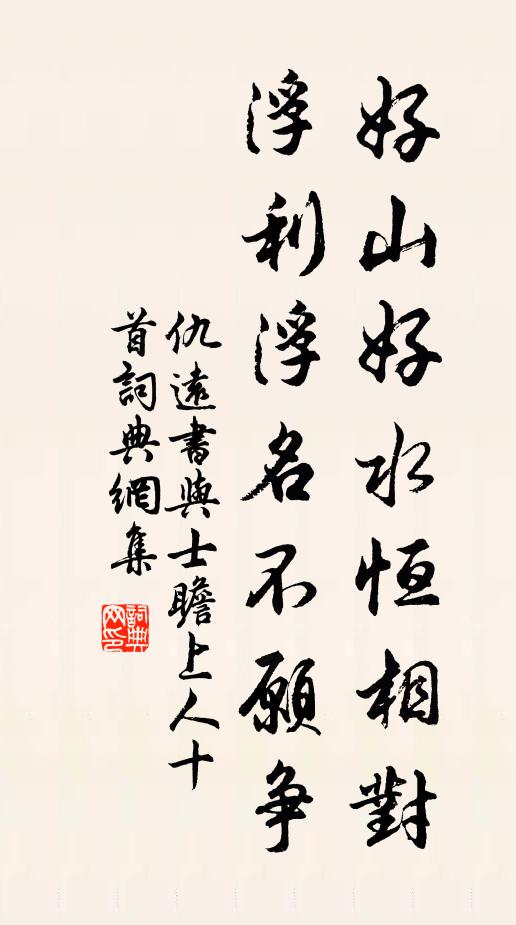 好山好水恒相對
浮利浮名不願争
仇遠書與士瞻上人十
首詞典網集
詞典
网印